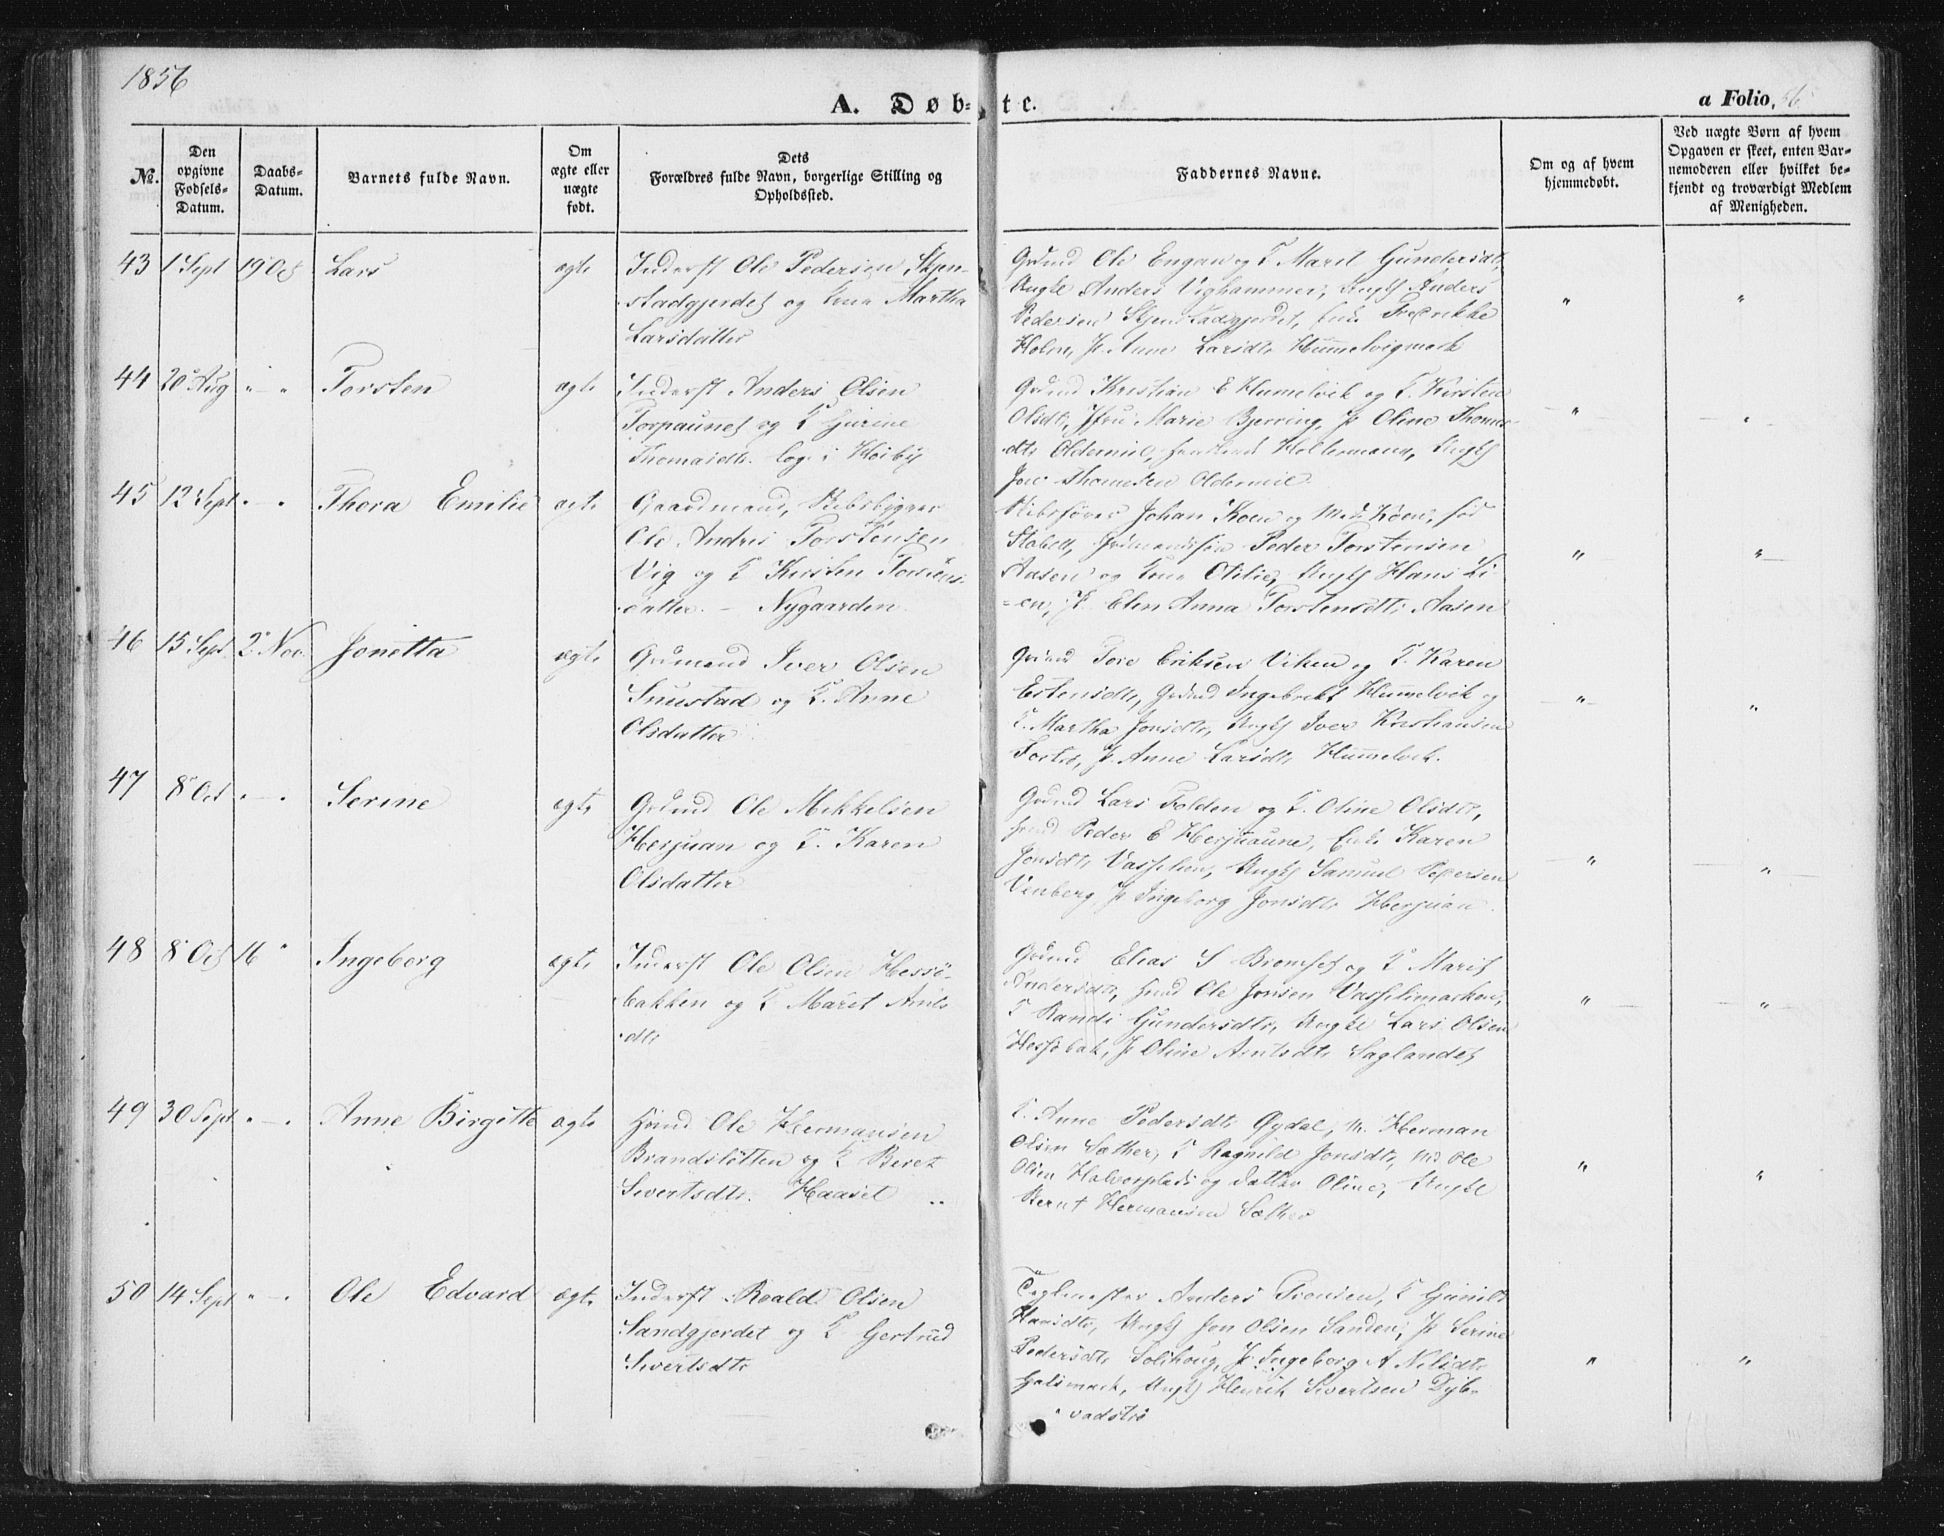 1856
A. Døb-
te.
a Folio, 56
№.
Den opgivne Fødsels-Datum.
Daabs-Datum.
Barnets fulde Navn.
Om ægte eller uægte født.
Dets Forældres fulde Navn, borgerlige Stilling og Opholdssted.
Faddernes Navne.
Om og af hvem hjemmedøbt.
Ved uægte Børn af hvem Opgaven er skeet, enten Barnemoderen eller hvilket bekjendt og troværdigt Medlem af Menigheden.
43 1 Sept 19 Oct Lars ægte Inderst Ole Pedersen Skjen-
stadgjerdet og Kone Martha
Larsdatter
Grdmd Ole Engan og K Maret Gundersdt,
Ungkl Anders Vighammer, Ungk Anders
Pedersen Skjenstadgjerdet, Enke Fredrikke
Holm, P. Anne Larsdtr Hummelvigmark
" "
44 20 Aug " — " Torsten ægte Inderst Anders Olsen
Torpaunet og K Gurine
Thomasdtr. log. i Høiby
Grdmd Kristian E Humelvik og K. Kirsten
Olsdtr, Jfru Marie Bjerring, P Oline Thomas-
dtr Oldermel, Holtermann, Ungk
Jon Thomesen Oldermel
" "
45 12 Sept " — " Thora Emilie ægte Gaardmand, Skibsbygger
Ole Andris Torstensen
Vig og K Kirsten Torstens-
datter. — Nygaarden
Skibsfører Johan Koen og Mad. Koen, fød
Stabell, Grdmandssøn Peder Torstensen
Aasen og Kone Otilie, Ungk Hans Li-
=en, P. Elen Anna Torstensdtr Aasen
" "
46 15 Sept 2 Nov. Jonetta ægte Grdmand Iver Olsen
Snustad og K. Anne
Olsdatter
Grdmd Tore Eriksen Viken og K. Karen
Estensdtr, Grdmd Ingebrekt Hummelvik og
K. Martha Jonsdtr, Ungk Iver Kristiansen
P. Anne Larsdtr Hummelvik.
" "
47 8 Oct " — " Serine ægte Grdmd Ole Mikkelsen
Herjuan og K. Karen
Olsdatter
Grdmd Lars Folden og K. Oline Olsdtr,
Hmd Peder E Herjuaune, Enke Karen
Jonsdtr Vasslien, Ungk Samuel Pedersen
Venberg, P Ingeborg Jonsdtr Herjuan.
" "
48 8 Oct 16 " Ingeborg ægte Inderst Ole Olsen Hessø-
bakken og K Maret Arnts
dtr
Grdmd Elias S Bromset og K Marit
Andersdtr, Hmd Ole Jonsen Vasslimarken,
K Randi Gundersdtr, Ungkl Lars Olsen
Hessøbak, P Oline Arntsdtr Saglandet
" "
49 30 Sept " — " Anne Birgitte ægte Hmd Ole Hermansen
Brandsletten og K Beret
Sivertsdtr. Haaset
K. Anne Pedersdtr Gydal, M. Herman
Olsen Sæther, K Ragnild Jonsdtr, Md Ole
Olsen Halvorplads og datter Oline, Ungkl
Bernt Hermansen Sæther
" "
50 14 Sept " — " Ole Edvard ægte Inderst Roald Olsen
Sandgjerdet og K. Gertrud
Sivertsdtr
Teglmester Anders Tronsen, K Gunild
Hansdtr, Ungk Jon Olsen Sanden, P Serine
Pedersdtr Solihoug, P Ingeborg A Nilsdtr
Halsmark, Ungk Henrik Sivertsen Dyb-
vadstrø
" "